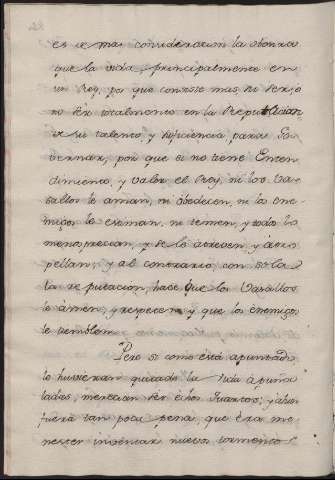 es de mas consideracion la honra
que la vida, principalmente en
un Rey, pa que consiste mas su ser, o
no ser totalmente en la Republica en
su talento, y suficiencia para Go
vernar, por que si no tiene Enten
dimiento, y valor el Rey, ni los Va
sallos le aman, ni obedecen, ni los ene
migos le estiman, ni temen, y todos lo
menosprecian, y se le atreven, y atro
pellan; y al contrario con sola
la reputacion, hace que los Vasallos
le amen, y respeten y que los enemigos
le tiemblen.
Pero si como está apuntado
le huvieran quitado la vida a puña
ladas, merecian ser echos Quartos; y aun
fuera tan poca pena, que era me
nester inventar nuevos tormentos